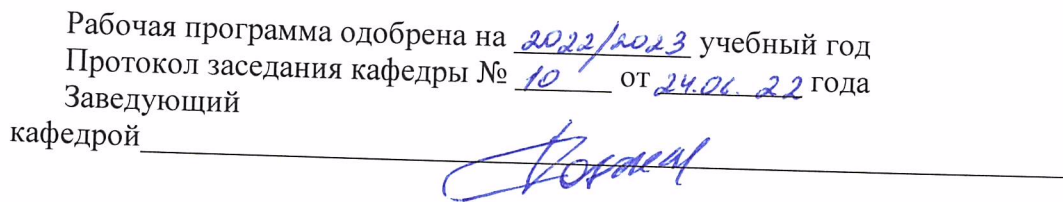 Рабочая программа одобрена на 2022/2023 учебный год
Протокол заседания кафедры № 10 от 24.06.22 года
Заведующий
кафедрой